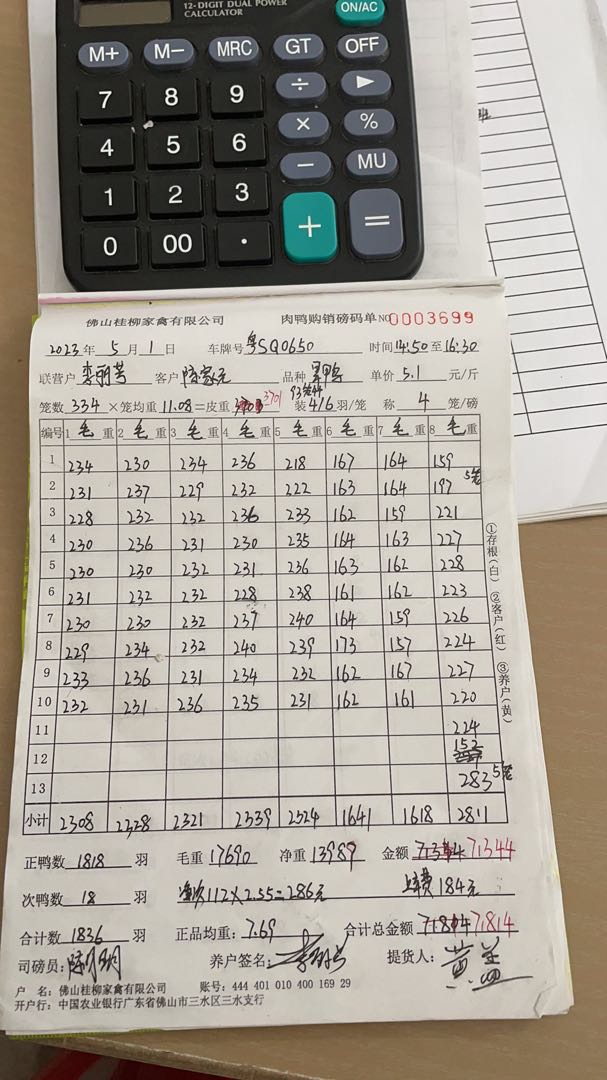 12-DIGIT DUAL POWER
CALCULATOR
ON/AC
M+ M- MRC GT OFF
7 8 9 ÷ ►
4 5 6 × %
1 2 3 − MU
0 00 · + =
班
佛山桂柳家禽有限公司 肉鸭购销磅码单 NO 0003699
2023年 5月 1日 车牌号 粤SQ0650 时间 14:50 至 16:30
联营户 客户 陈家元 品种 单价 5.1 元/斤
笼数 334 ×笼均重 11.08 =皮重 3701 装 4/6 羽/笼 称 4 笼/磅
编号 1 毛 重 2 毛 重 3 毛 重 4 毛 重 5 毛 重 6 毛 重 7 毛 重 8 毛 重
1 234 230 234 236 218 167 164 159
2 231 237 229 232 222 163 164 197 5笼
3 228 232 232 236 233 162 159 221
4 230 236 231 230 235 164 163 227
5 230 230 232 231 236 163 162 228
6 231 232 232 228 238 161 162 223
7 230 230 232 237 240 164 159 226
8 229 234 232 240 239 173 157 224
9 233 236 231 234 232 162 167 227
10 232 231 236 235 231 162 161 220
11 224
12 152
13 283 5笼
小计 2308 2328 2321 2339 2324 1641 1618 2811
①存根(白) ②客户(红) ③养户(黄)
正鸭数 1818 羽 毛重 17690 净重 13989 金额 71344
次鸭数 18 羽 112×2.55=286元 上费 184元
合计数 1836 羽 正品均重: 7.69 合计总金额 71814
司磅员: 养户签名: 提货人:
户 名: 佛山桂柳家禽有限公司 账号: 444 401 010 400 169 29
开户行: 中国农业银行广东省佛山市三水区三水支行